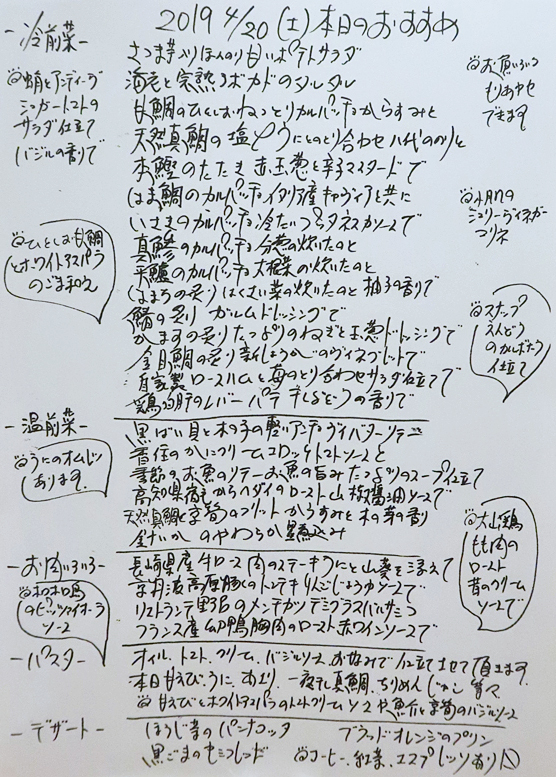 2019 4/20 (土) 本日のおすすめ
-冷前菜-
蛸とアンディーブ
シュガートマトの
サラダ仕立て
バジルの香りで
さつま芋入りほんのり甘いポテトサラダ
海老と完熟アボカドのタルタル
甘鯛のひとしおねっとりカルパッチョからすみと
天然真鯛の塩〆うにとのとり合わせ八代ののりと
本鰹のたたき 赤玉葱と辛子マスタードで
はま鯛のカルパッチョイタリア産キャヴィアと共に
いさきのカルパッチョ冷たいプッタネスカソースで
真鯵のカルパッチョ分葱の炊いたのと
平鱸のカルパッチョ大根菜の炊いたのと
はまちの炙り はくさい菜の炊いたのと 柚子の香りで
鯖の炙り ガルムドレッシングで
かますの炙りたっぷりのねぎと玉葱ドレッシングで
金目鯛の炙り 新しょうがのヴィネグレットで
自家製ロースハムと苺のとり合わせサラダ仕立てで
鶏 のレバーパテ 干しぶどうの香りで
お魚いろいろ
もりあわせ
できます
シェリーヴィネガー
マリネ
ひとしお甘鯛
とホワイトアスパラ
のごま和え
スナップ
えんどう
のカルボナーラ
仕立て
-温前菜-
うにのオムレツ
あります。
黒ばい貝と木の子の軽いアンチョヴィバターソテー
香住のかにクリームコロッケトマトソースと
季節のお魚のソテーお魚の旨みたっぷりのスープ仕立て
高知県宿毛からヘダイのロースト山椒醤油ソースで
天然真鯛と京筍のフリット からすみと木の芽の香り
金だいかのやわらか墨煮込み
大山鶏
もも肉の
ロースト
昔のクリーム
ソースで
-お肉いろいろ-
ホロホロ鳥
のピッツァイオーラ
ソース
長崎県産牛ロース肉のステーキうにと山葵を添えて
京丹波高原豚のトンテキりんごじょうゆソースで
リストランテ野呂のメンチカツデミグラスバルサミコ
フランス産仔鴨胸肉のロースト赤ワインソースで
-パスタ-
オイル、トマト、クリーム、バジルソース、お好みで仕立てさせて頂きます。
本日甘えび、うに、あさり、一夜干し真鯛、ちりめんじゃこ 等々
甘えびとホワイトアスパラのトマトクリームソースや魚介と京筍のバジルソース
-デザート-
ほうじ茶のパンナコッタ
ブラッドオレンジのプリン
黒ごまのセミフレッド
コーヒー、紅茶、エスプレッソ有り〼